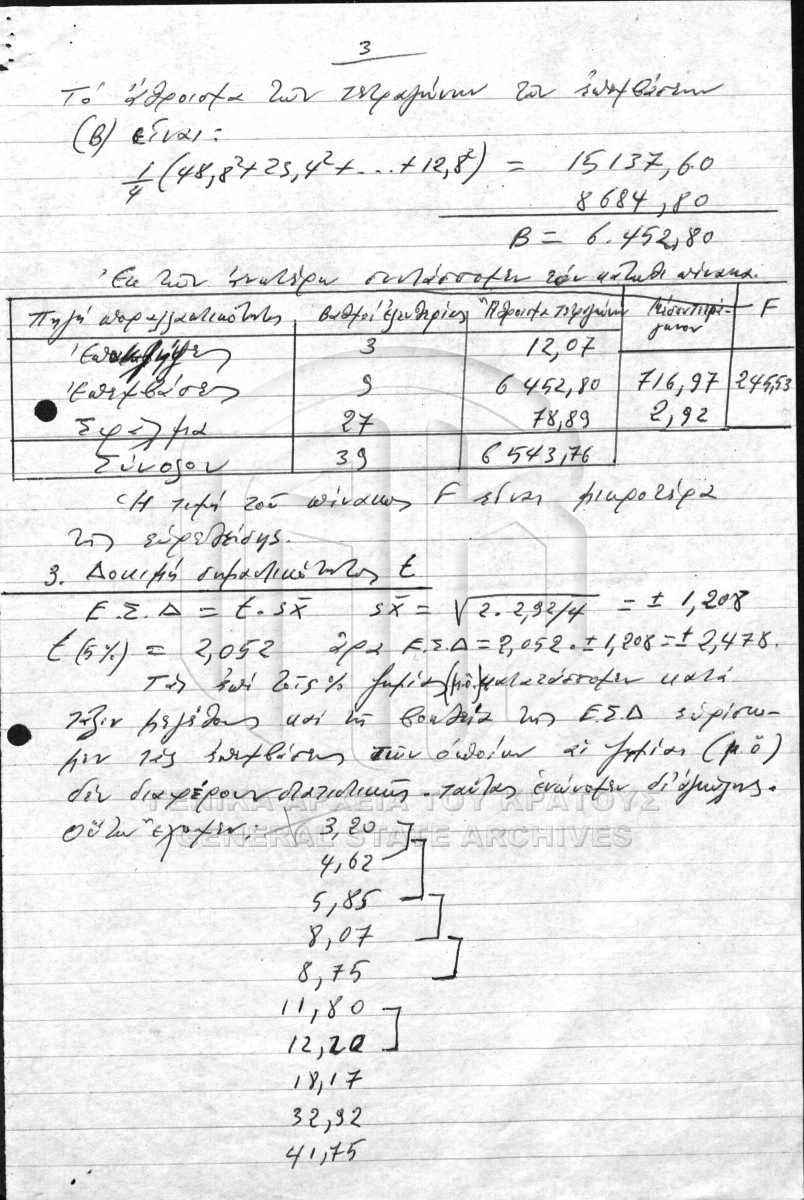 3
Τό άθροισμα των τετραγώνων των επεμβάσεων
(Β) είναι:
1/4 (48,8²+23,4²+...+12,8²) = 15137,60
8684,80
Β = 6.452,80
Εκ των ανωτέρω συντάσσομεν τόν κάτωθι πίνακα.
Πηγή παραλλακτικότητος | Βαθμοί ελευθερίας | Άθροισμα τετραγώνων | Μέσον τετράγωνον | F
Επαναλήψεις | 3 | 12,07
Επεμβάσεις | 9 | 6 452,80 | 716,97 | 245,53
Σφάλμα | 27 | 78,89 | 2,92
Σύνολον | 39 | 6 543,76
Η τιμή του πίνακος F είναι μικροτέρα
της ευρεθείσης.
3. Δοκιμή σημαντικότητος t
Ε.Σ.Δ = t. sx̄ sx̄ = √2. 2,92/4 = ± 1,208
t (5%) = 2,052 άρα Ε.Σ.Δ = 2,052 . ± 1,208 = ± 2,478.
Τάς επί τοίς % ζημίας (μ.ο.) κατατάσσομεν κατά
τάξιν μεγέθους καί τη βοηθεία της Ε.Σ.Δ ευρίσκο-
μεν τάς επεμβάσεις των οποίων αι ζημίαι (μ ο)
δέν διαφέρουν στατιστικώς. ταύτας ενώνομεν δι' αγκύλης.
Ούτω έχομεν 3,20
4,62
5,85
8,07
8,75
11,80
12,20
18,17
32,92
41,75
ΓΕΝΙΚΑ ΑΡΧΕΙΑ ΤΟΥ ΚΡΑΤΟΥΣ
GENERAL STATE ARCHIVES